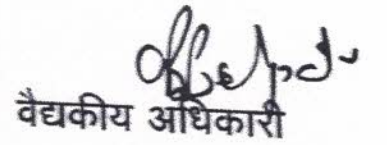 वैद्यकीय अधिकारी